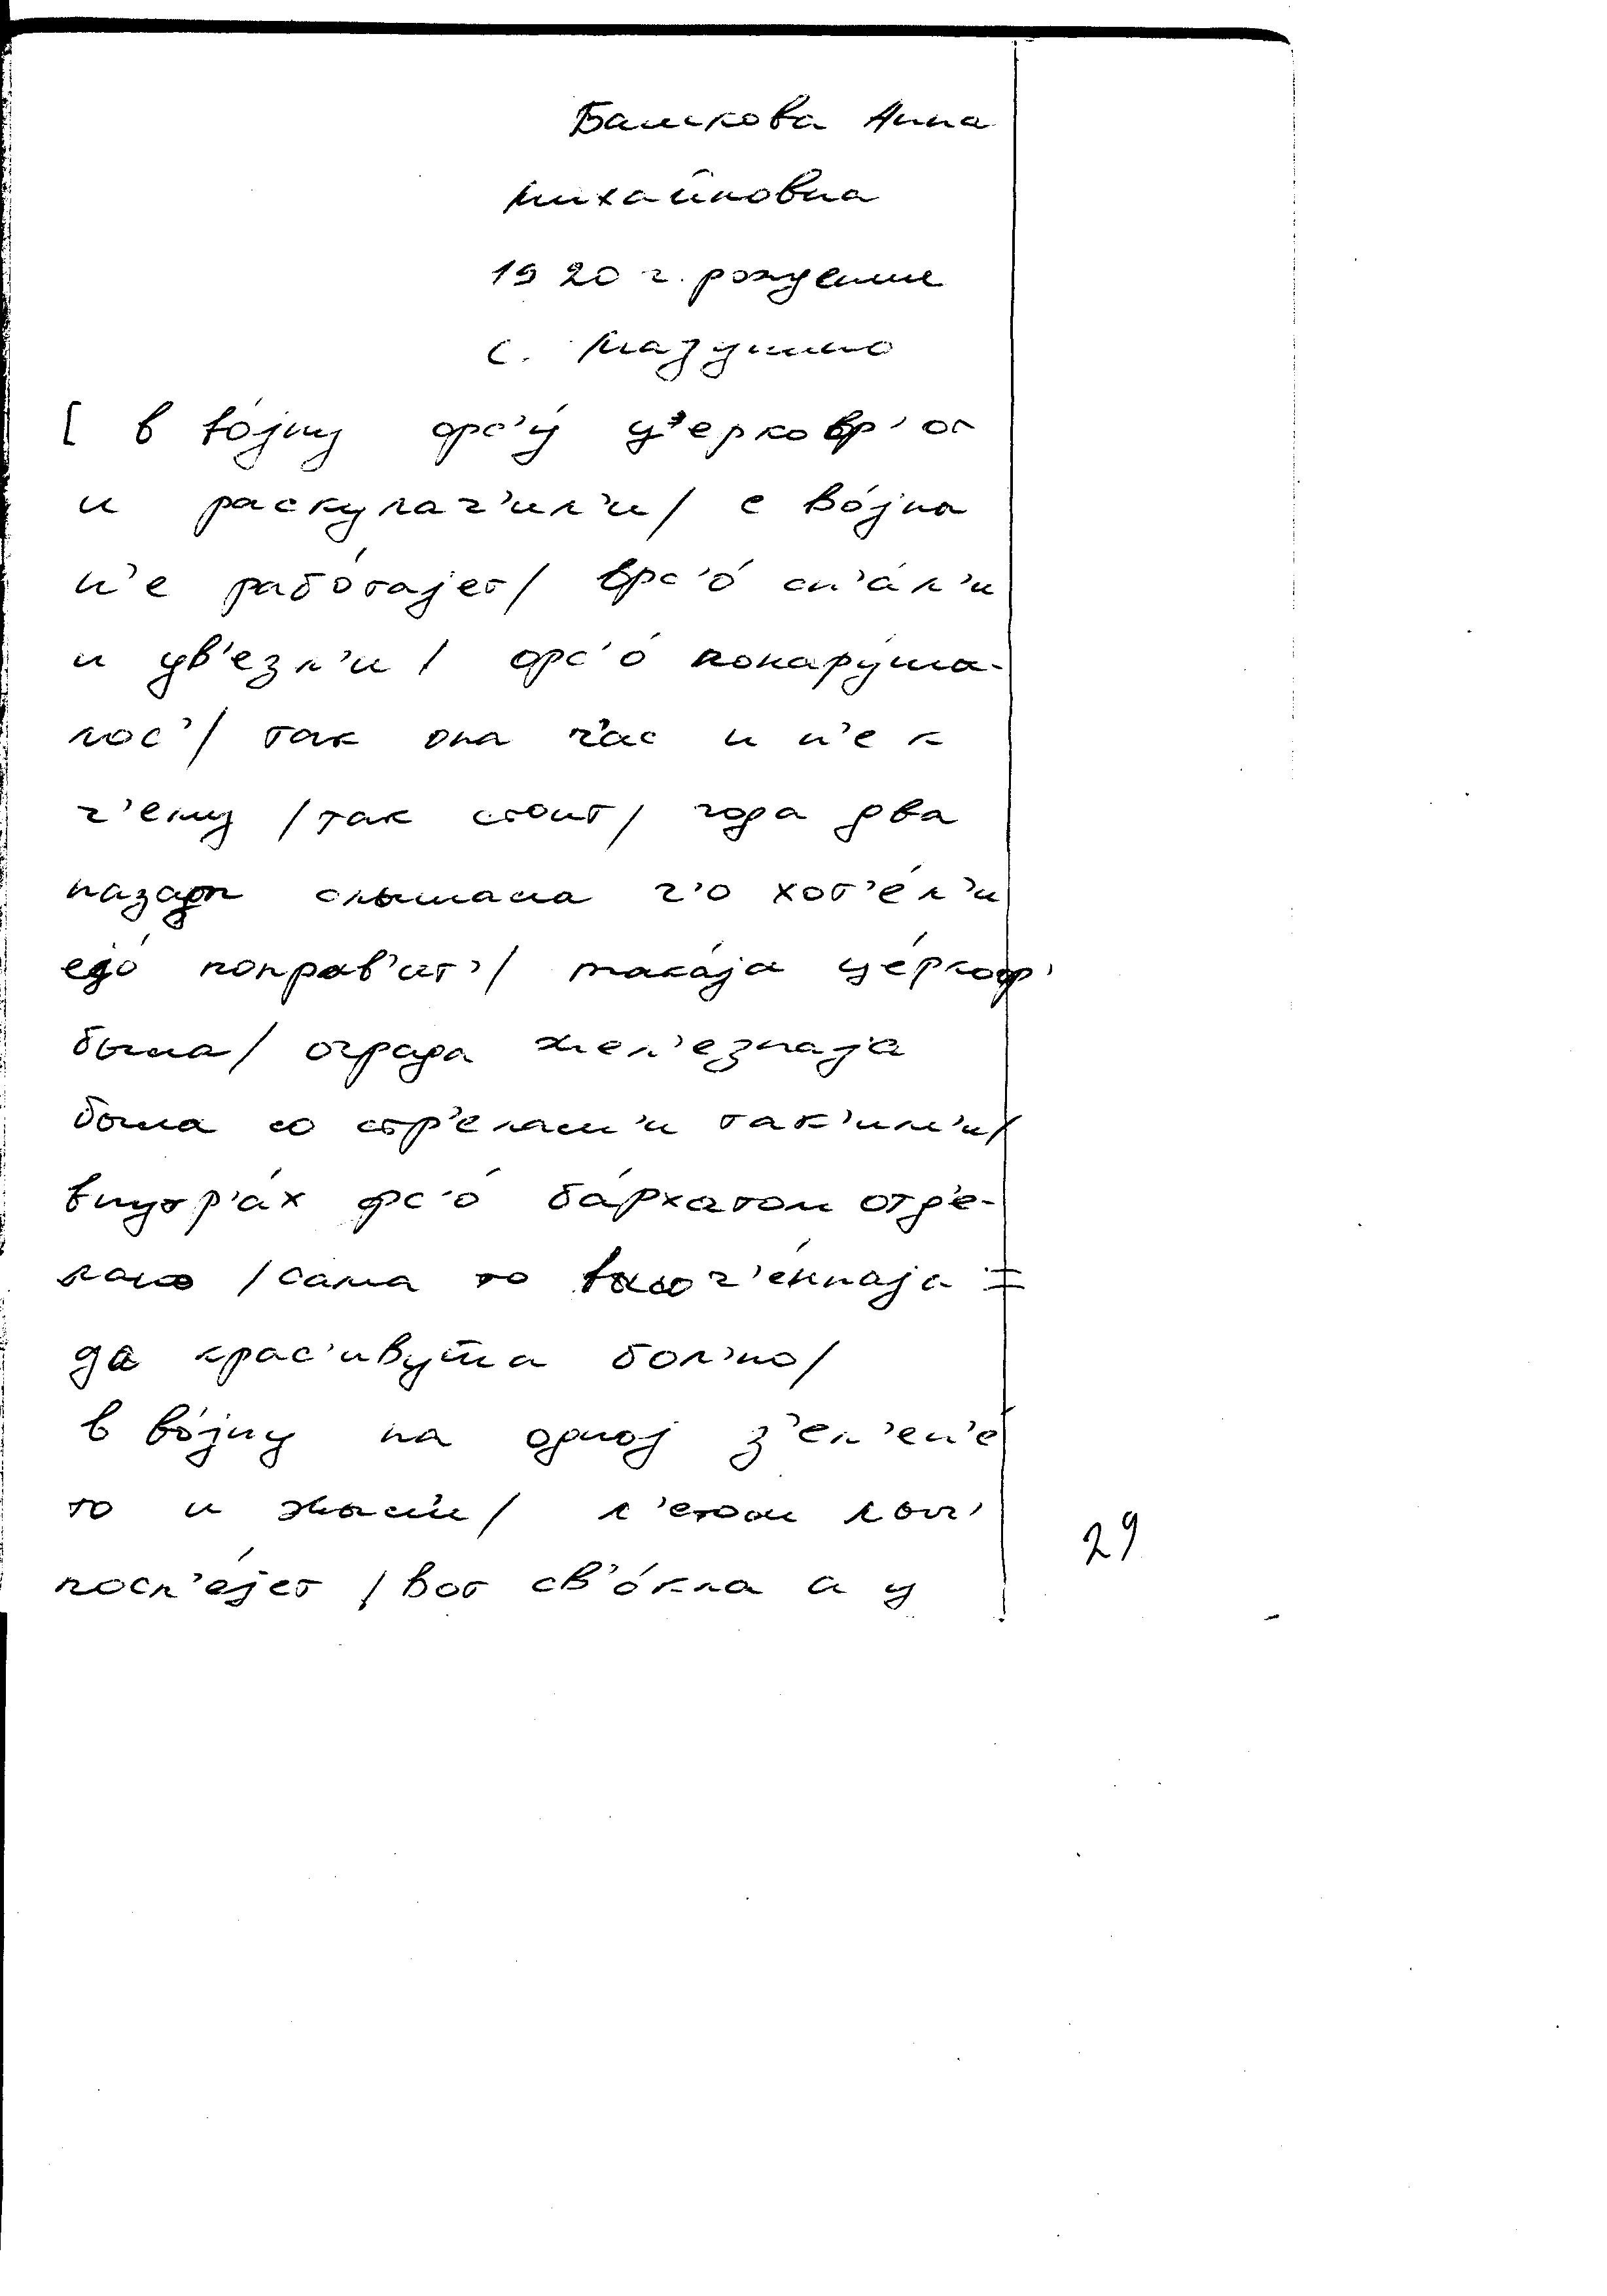 Башкова Анна
Михайловна
1920 г. рождения
с. Мазунино
[ в во́jну фс'у́ це́рковф' от
и раскулач'ил'и / с во́jна
н'е рабо́таjет / фс'о́ сн'а́л'и
и ув'езл'и / фс'о́ понару́ша-
лос' / так она ч'ас и н'е к
ч'ему / так стоит / года два
назадн слышала ч'о хот'е́л'и
еjо́ поправ'ит' / така́jа це́ркоф'
была / ограда жел'езнаjа
была со стр'елам'и так'им'и /
внутр'а́х фс'о́ ба́рхатом отд'е-
лано / сама то ч'е́ннаjа =
да крас'ивуща бол'но /
в во́jну на одноj з'ел'ен'е́
то и жыл'и / л'етом
посп'е́jет / вот св'о́кла а у
29